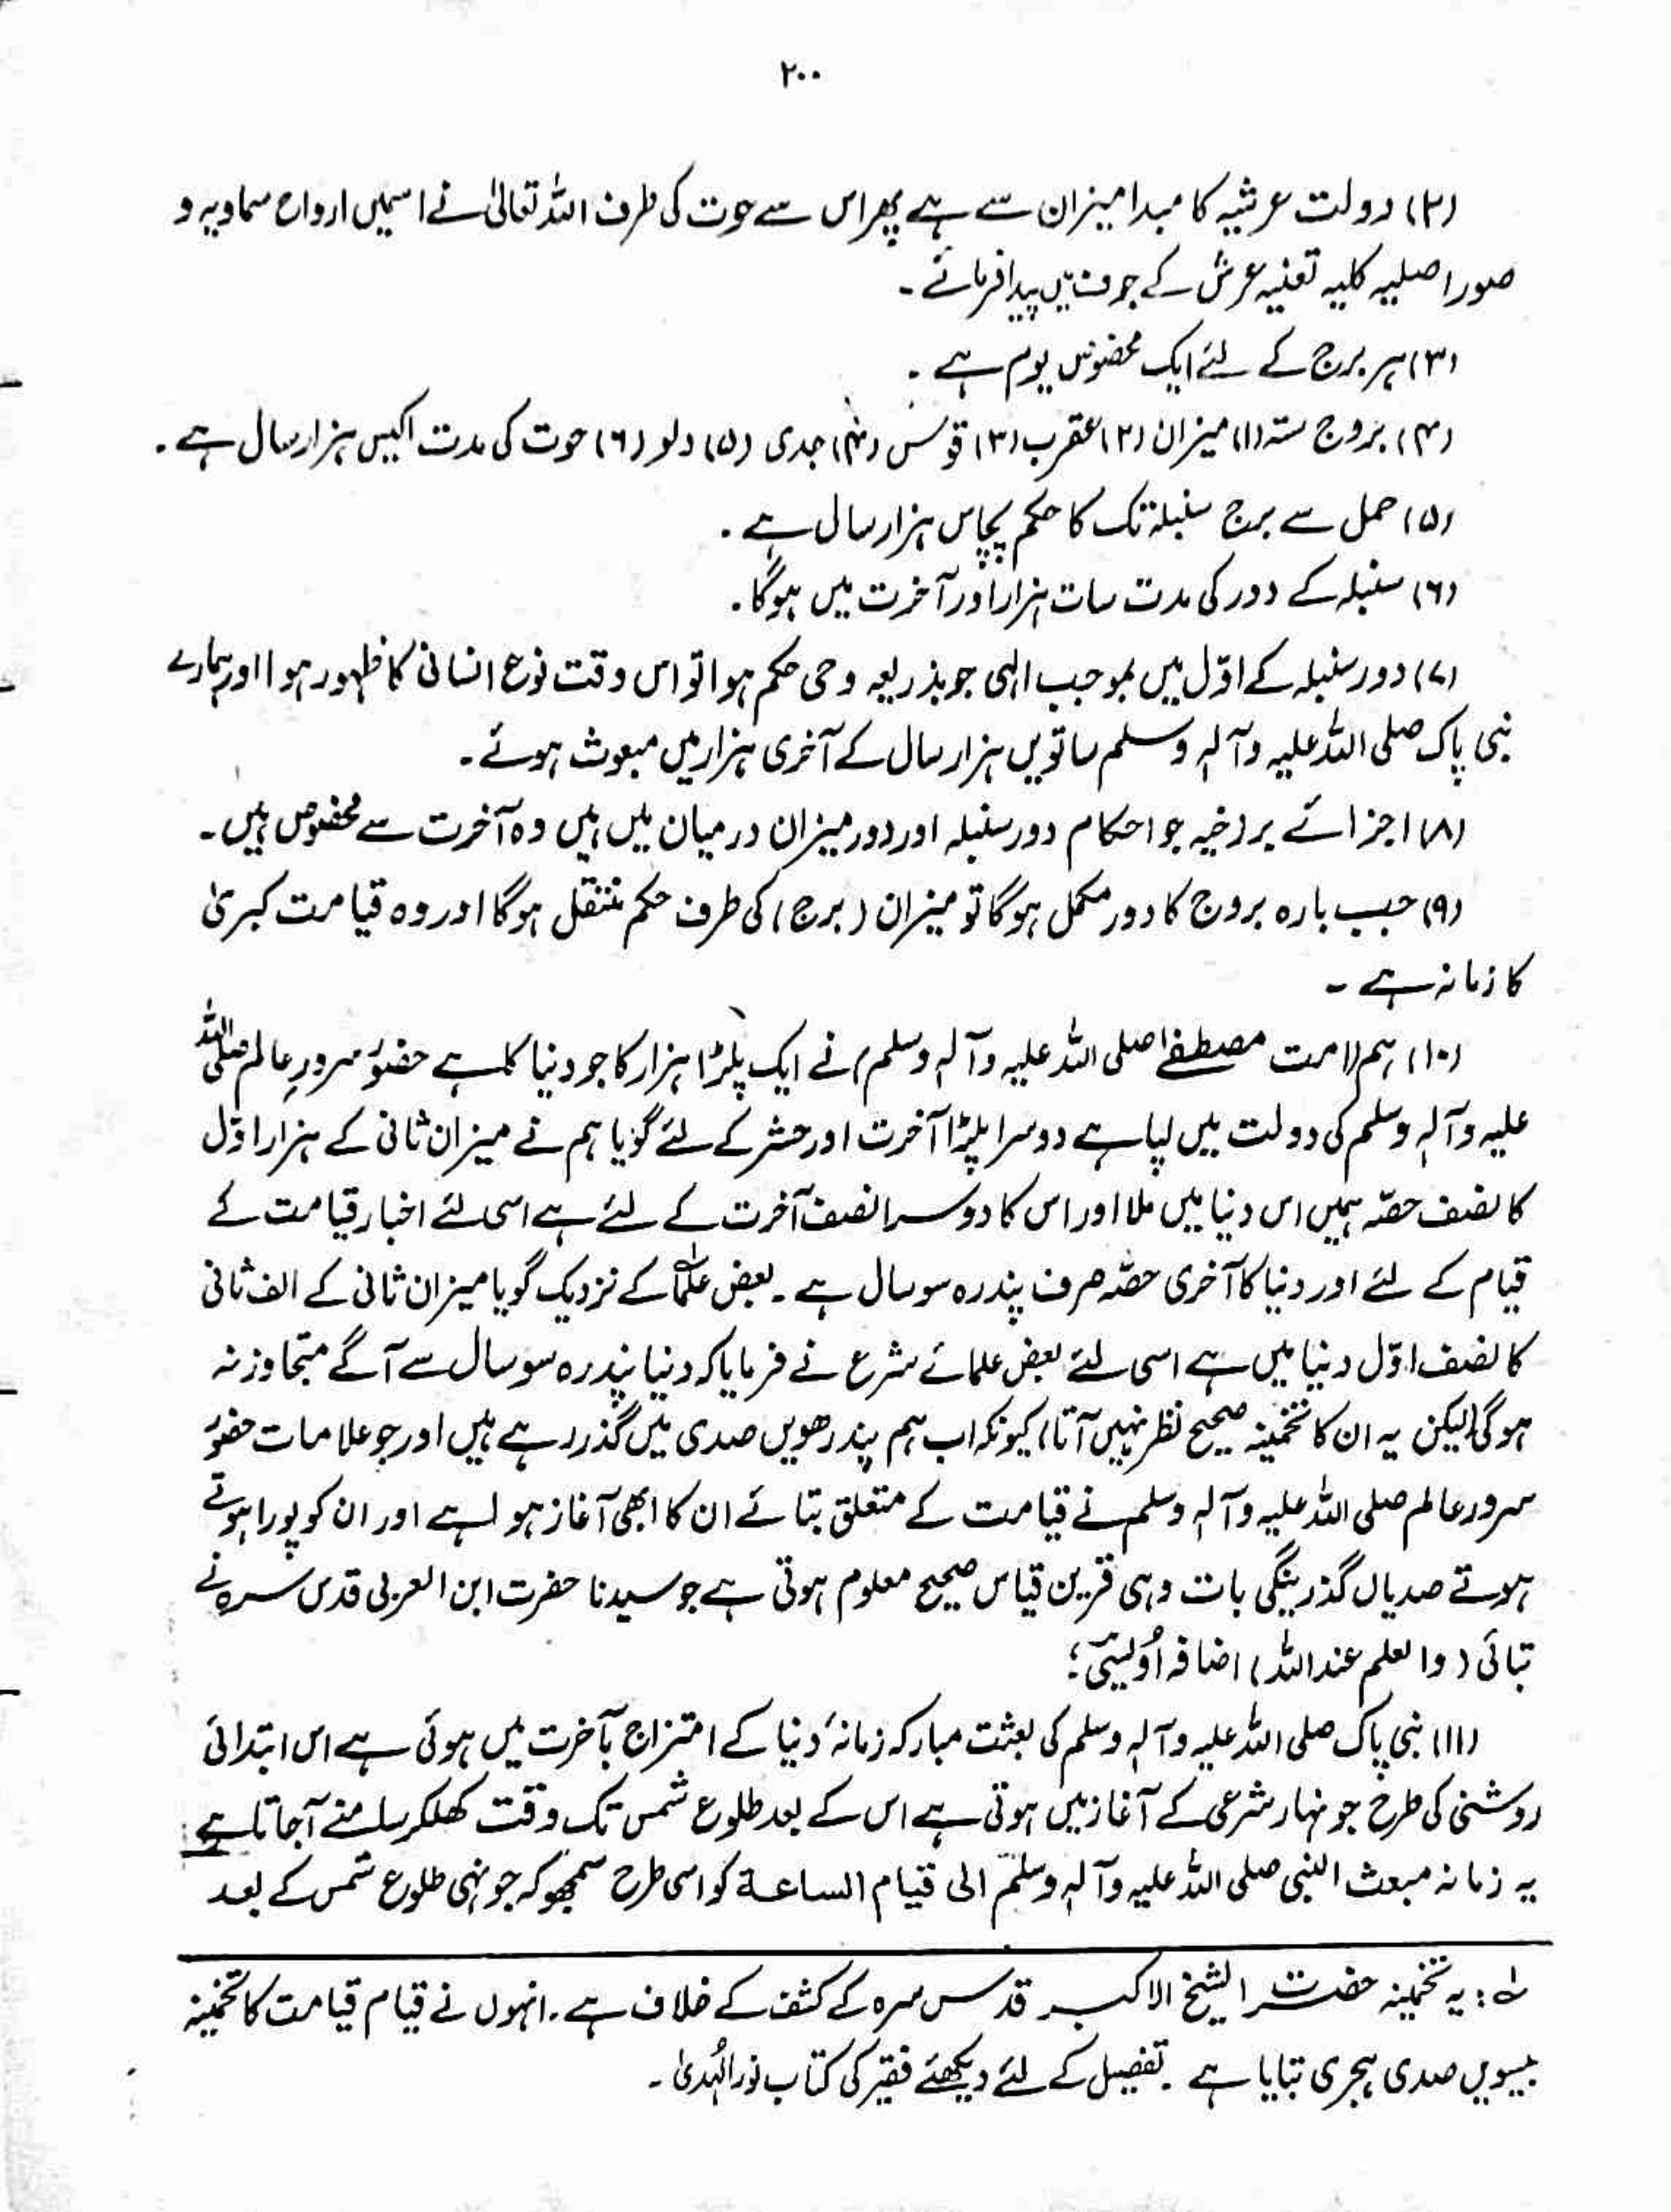 ۲۰۰
(۲) دولت عرشیہ کا مبدا میزان سے ہے پھر اس سے حوت کی طرف اللہ تعالیٰ نے اسمیں ارواح سماویہ و
صور اصلیہ کلیہ تعنیہ عرش کے جوف میں پیدا فرمائے ۔
(۳) ہر برج کے لئے ایک مخصوص یوم ہے ۔
(۴) بروج ستہ (۱) میزان (۲) عقرب (۳) قوس (۴) جدی (۵) دلو (۶) حوت کی مدت اکیس ہزار سال ہے ۔
(۵) حمل سے برج سنبلہ تک کا حکم پچاس ہزار سال ہے ۔
(۶) سنبلہ کے دور کی مدت سات ہزار اور آخرت میں ہوگا ۔
(۷) دور سنبلہ کے اوّل میں بموجب الہی جو بذریعہ وحی حکم ہوا تو اس وقت نوع انسانی کا ظہور ہوا اور ہمارے
نبی پاک صلی اللہ علیہ وآلہ وسلم ساتویں ہزار سال کے آخری ہزار میں مبعوث ہوئے ۔
(۸) اجزائے برزخیہ جو احکام دور سنبلہ اور دور میزان درمیان میں ہیں وہ آخرت سے مخصوص ہیں ۔
(۹) جب بارہ بروج کا دور مکمل ہوگا تو میزان (برج) کی طرف حکم منتقل ہوگا اور وہ قیامت کبریٰ
کا زمانہ ہے ۔
(۱۰) ہم (امت مصطفےٰ صلی اللہ علیہ وآلہ وسلم) نے ایک پلڑا ہزار کا جو دنیا کا ہے حضور سرورِ عالم صلی اللہ
علیہ وآلہ وسلم کی دولت میں لیا ہے دوسرا پلڑا آخرت اور حشر کے لئے گویا ہم نے میزان ثانی کے ہزار اوّل
کا نصف حصّہ ہمیں اس دنیا میں ملا اور اس کا دوسرا نصف آخرت کے لئے ہے اسی لئے اخبار قیامت کے
قیام کے لئے اور دنیا کا آخری حصّہ صرف پندرہ سو سال ہے ۔ بعض علماؒ کے نزدیک گویا میزان ثانی کے الف ثانی
کا نصف اوّل دنیا میں ہے اسی لئے بعض علمائے شرع نے فرمایا کہ دنیا پندرہ سو سال سے آگے متجاوز نہ
ہوگی (لیکن یہ ان کا تخمینہ صحیح نظر نہیں آتا) کیونکہ اب ہم پندرھویں صدی میں گذر رہے ہیں اور جو علامات حضور
سرور عالم صلی اللہ علیہ وآلہ وسلم نے قیامت کے متعلق بتائے ان کا ابھی آغاز ہوا ہے اور ان کو پورا ہوتے
ہوتے صدیاں گذرینگی بات وہی قرین قیاس صحیح معلوم ہوتی ہے جو سیدنا حضرت ابن العربی قدس سرہ نے
بتائی (والعلم عند اللہ) اضافہ اُویسیؔ ؛
(۱۱) نبی پاک صلی اللہ علیہ وآلہ وسلم کی بعثت مبارکہ زمانۂ دنیا کے امتزاج بآخرت میں ہوئی ہے اس ابتدائی
روشنی کی طرح جو نہار شرعی کے آغاز میں ہوتی ہے اس کے بعد طلوع شمس تک وقت کھلکر سامنے آجاتا ہے
یہ زمانہ مبعث النبی صلی اللہ علیہ وآلہ وسلم الی قیام الساعۃ کو اسی طرح سمجھو کہ جونہی طلوع شمس کے بعد
لہ : یہ تخمینہ حضرت الشیخ الاکبر قدس سرہ کے کشف کے خلاف ہے ۔ انہوں نے قیام قیامت کا تخمینہ
بیسویں صدی ہجری بتایا ہے ۔ تفصیل کے لئے دیکھئے فقیر کی کتاب نور الہُدیٰ ۔